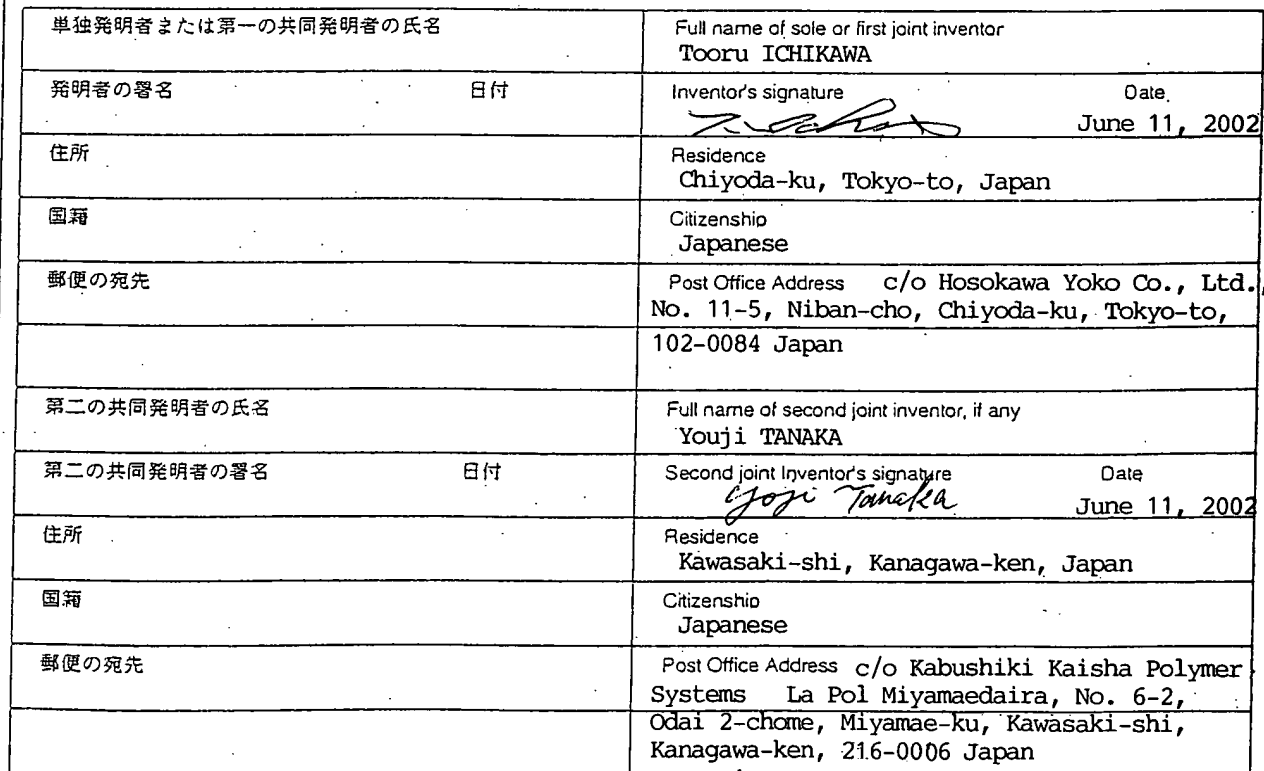 単独発明者または第一の共同発明者の氏名
Full name of sole or first joint inventor
Tooru ICHIKAWA
発明者の署名 日付
Inventor's signature Date
June 11, 2002
住所
Residence
Chiyoda-ku, Tokyo-to, Japan
国籍
Citizenship
Japanese
郵便の宛先
Post Office Address c/o Hosokawa Yoko Co., Ltd.,
No. 11-5, Niban-cho, Chiyoda-ku, Tokyo-to,
102-0084 Japan
第二の共同発明者の氏名
Full name of second joint inventor, if any
Youji TANAKA
第二の共同発明者の署名 日付
Second joint Inventor's signature Date
Yoji Tanaka June 11, 2002
住所
Residence
Kawasaki-shi, Kanagawa-ken, Japan
国籍
Citizenship
Japanese
郵便の宛先
Post Office Address c/o Kabushiki Kaisha Polymer
Systems La Pol Miyamaedaira, No. 6-2,
Odai 2-chome, Miyamae-ku, Kawasaki-shi,
Kanagawa-ken, 216-0006 Japan